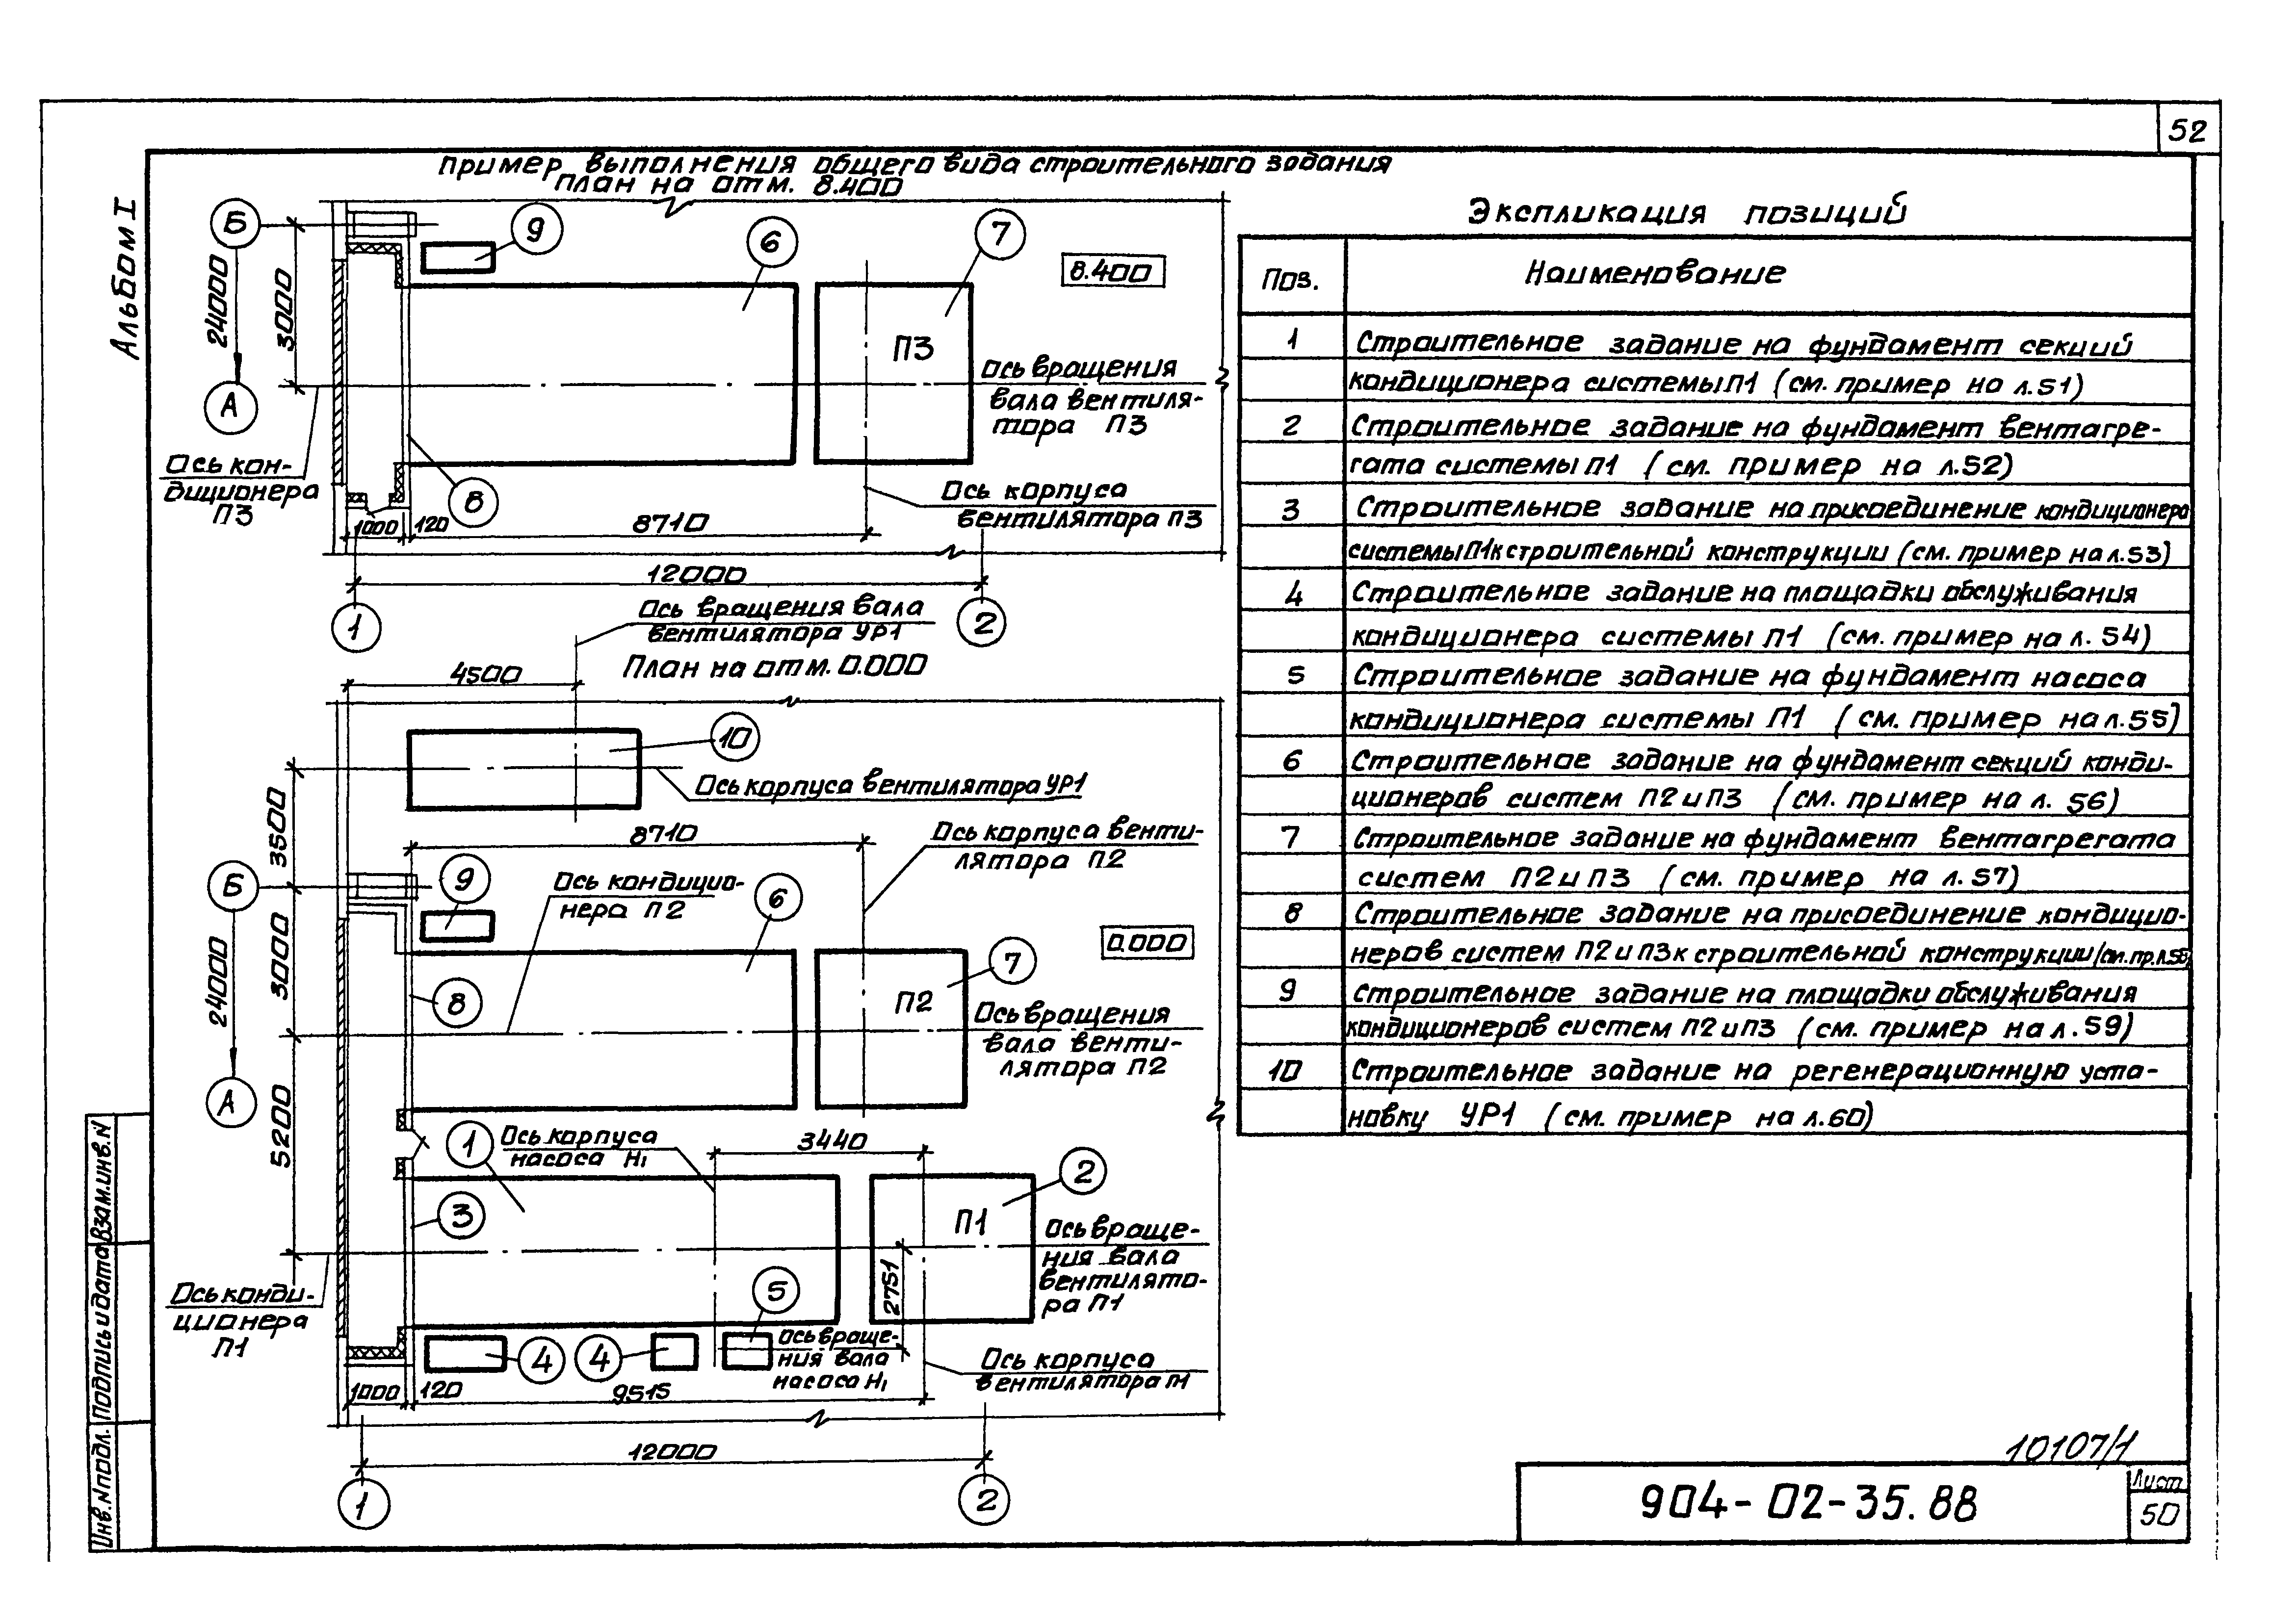 52
Альбом I
Пример выполнения общего вида строительного задания
План на отм. 8.400
Б
24000
3000
А
9
6
7
8.400
П3
Ось вращения
вала вентиля-
тора П3
Ось кон-
диционера
П3
8
Ось корпуса
вентилятора П3
1000
120
8710
12000
1
2
Ось вращения вала
вентилятора УР1
План на отм. 0.000
4500
10
Ось корпуса вентилятора УР1
3500
8710
Ось корпуса венти-
лятора П2
Б
24000
3000
А
9
Ось кондицио-
нера П2
6
0.000
7
8
П2
Ось вращения
вала венти-
лятора П2
5200
1
Ось корпуса
насоса Н1
3440
2
3
П1
Ось враще-
ния вала
вентилято-
ра П1
2751
Ось конди-
ционера
П1
5
4
4
Ось враще-
ния вала
насоса Н1
Ось корпуса
вентилятора П1
1000
120
9515
12000
1
2
Экспликация позиций
Поз.
Наименование
1
Строительное задание на фундамент секций
кондиционера системы П1 (см. пример на л.51)
2
Строительное задание на фундамент вентагре-
гата системы П1 (см. пример на л.52)
3
Строительное задание на присоединение кондиционера
системы П1 к строительной конструкции (см. пример на л.53)
4
Строительное задание на площадки обслуживания
кондиционера системы П1 (см. пример на л. 54)
5
Строительное задание на фундамент насоса
кондиционера системы П1 (см. пример на л.55)
6
Строительное задание на фундамент секций конди-
ционеров систем П2 и П3 (см. пример на л. 56)
7
Строительное задание на фундамент вентагрегата
систем П2 и П3 (см. пример на л. 57)
8
Строительное задание на присоединение кондицио-
неров систем П2 и П3 к строительной конструкции (см. пр. л.58)
9
Строительное задание на площадки обслуживания
кондиционеров систем П2 и П3 (см. пример на л. 59)
10
Строительное задание на регенерационную уста-
новку УР1 (см. пример на л.60)
Взам.инв.N
Подпись и дата
Инв.N подл.
10107/1
904-02-35.88
Лист
50